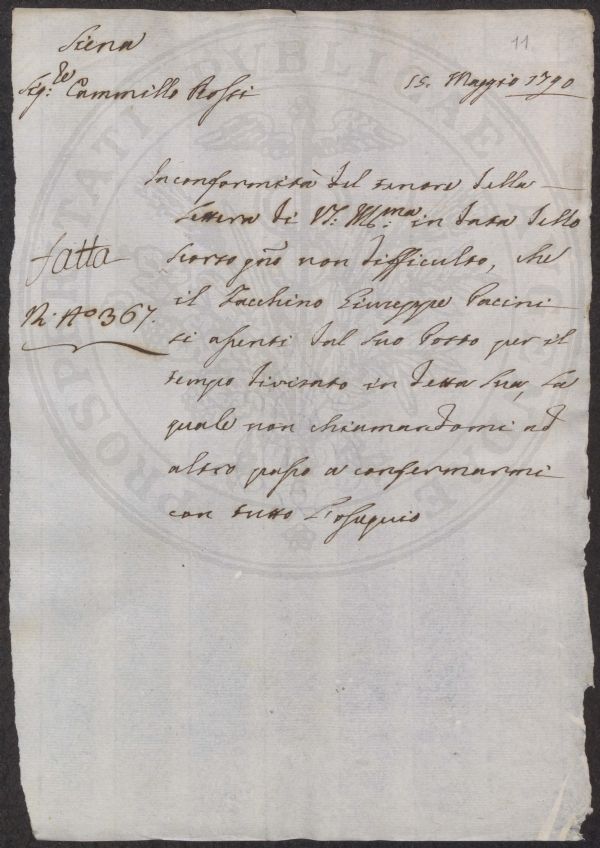 11
Siena
Sig.re Cammillo Rossi
15. Maggio 1790
Inconformità del tenore della
Lettera di V. in data dello
scorso giño non difficulto, che
il Facchino Giuseppe Pacini
si assenti dal suo Posto per il
tempo divisato in detta sua, La
quale non chiamandomi ad
altro passo a confermarmi
con tutto L'ossequio
fatta
N.º 367.
PROSPERITATI PUBLICAE